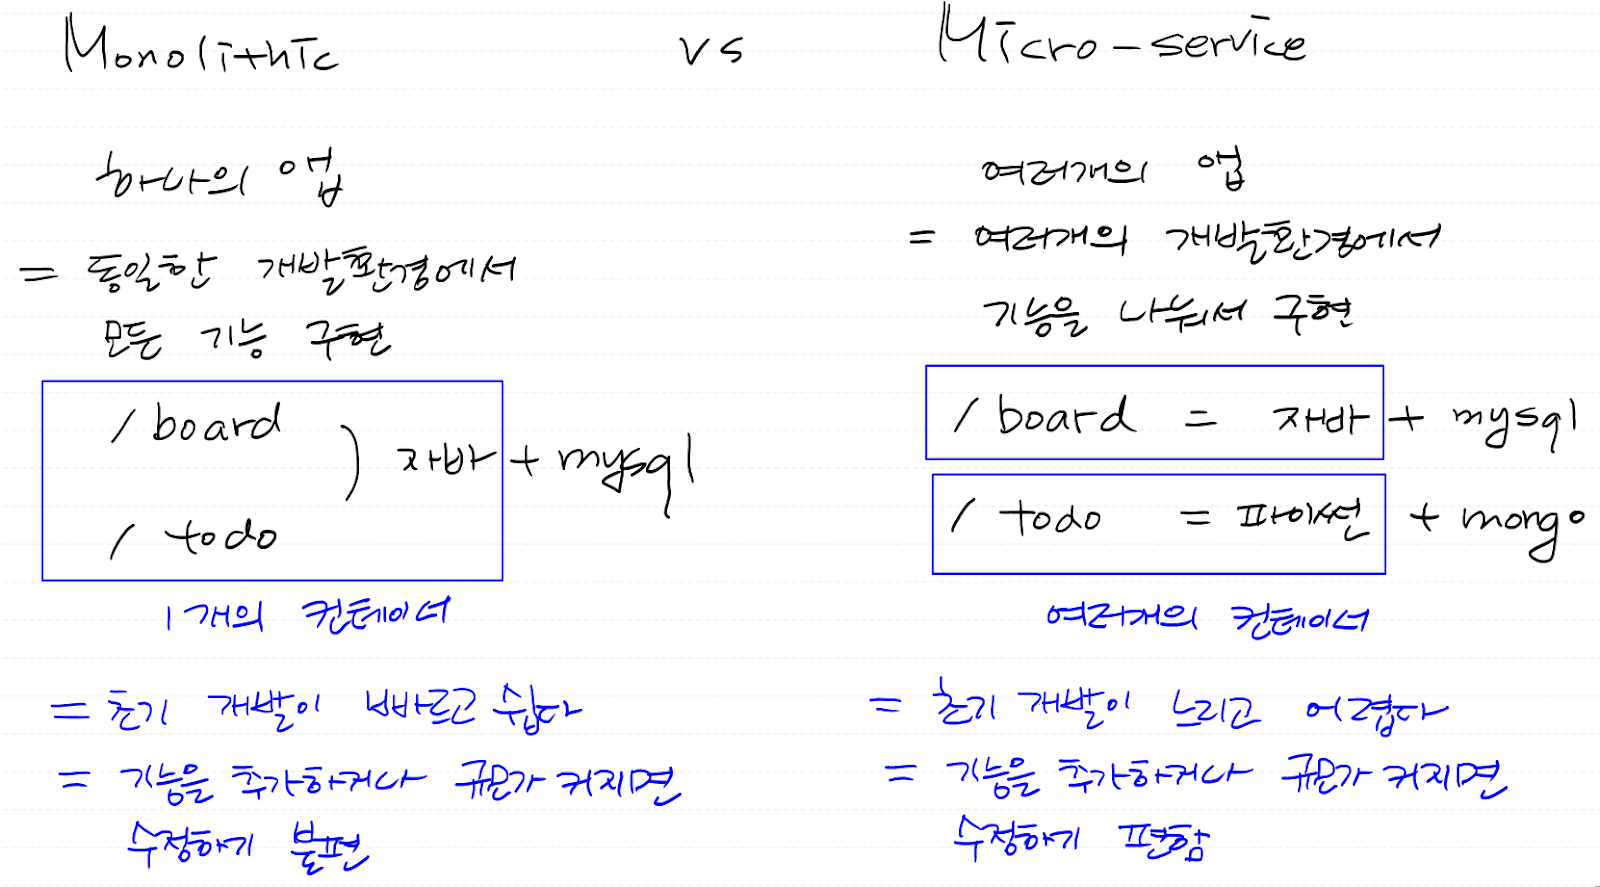 Monolithic vs Micro-service
하나의 앱
= 동일한 개발환경에서
모든 기능 구현
/ board
) 자바 + mysql
/ todo
1개의 컨테이너
= 초기 개발이 빠르고 쉽다
= 기능을 추가하거나 규모가 커지면
수정하기 불편
여러개의 앱
= 여러개의 개발환경에서
기능을 나눠서 구현
/ board = 자바 + mysql
/ todo = 파이썬 + mongo
여러개의 컨테이너
= 초기 개발이 느리고 어렵다
= 기능을 추가하거나 규모가 커지면
수정하기 편함